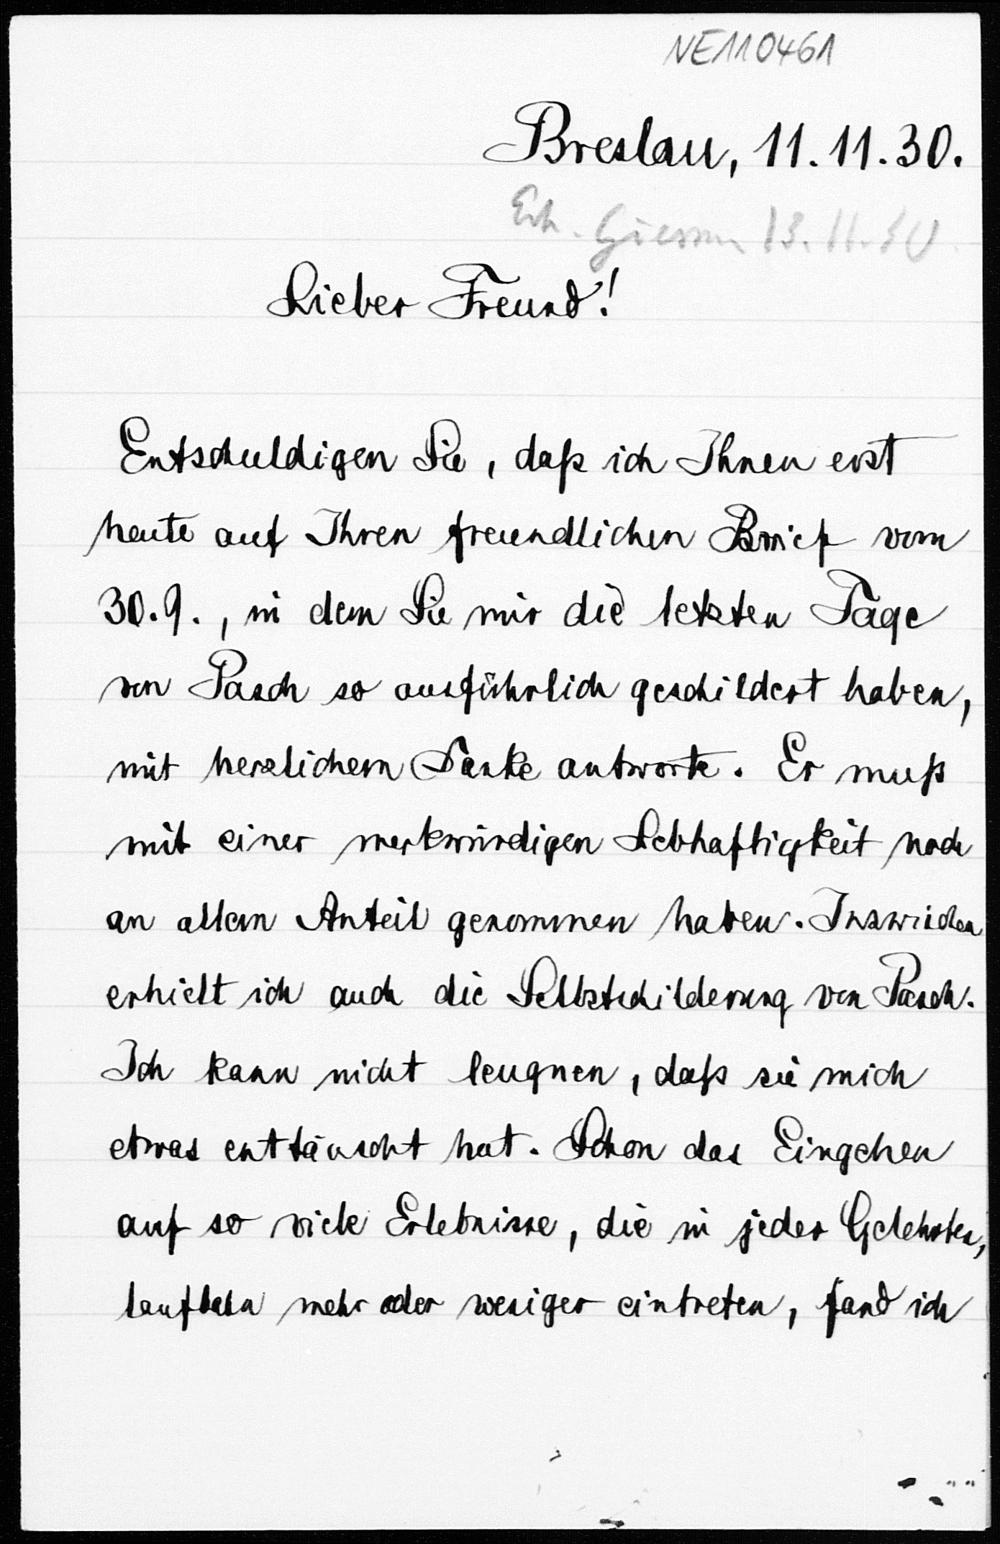 NE110461
Breslau, 11. 11. 30.
Erh. Giessen 13. 11. 30.
Lieber Freund!
Entschuldigen Sie, daß ich Ihnen erst
heute auf Ihren freundlichen Brief vom
30. 9., in dem Sie mir die letzten Tage
von Pasch so ausführlich geschildert haben,
mit herzlichem Danke antworte. Er muß
mit einer merkwürdigen Lebhaftigkeit noch
an allem Anteil genommen haben. Inzwischen
erhielt ich auch die Selbstschilderung von Pasch.
Ich kann nicht leugnen, daß sie mich
etwas enttäuscht hat. Schon das Eingehen
auf so viele Erlebnisse, die in jeder Gelehrten,
laufbahn mehr oder weniger eintreten, fand ich